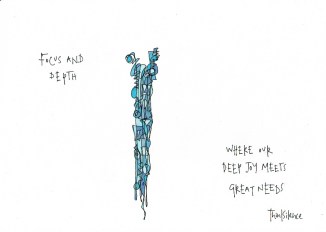 FOCUS AND
DEPTH
WHERE OUR
DEEP JOY MEETS
GREAT NEEDS
thinksilence